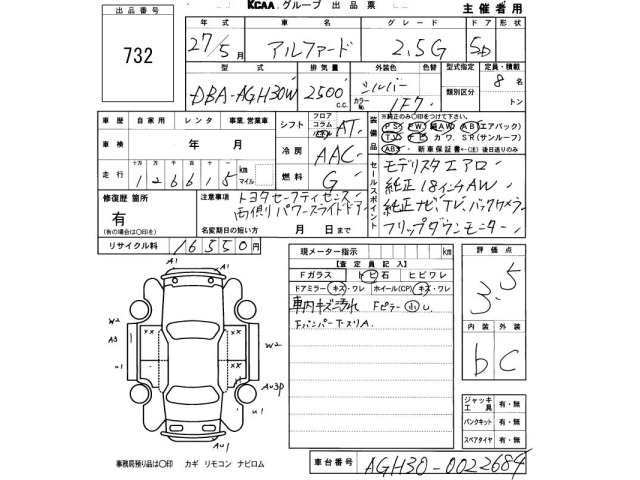 出品番号
732
KCAA グループ 出品票
主催者用
年式 車名 グレード ドア 形状
27/5月 アルファード 2.5G 5D
型式 排気量 外装色 色替 型式指定 定員・積載
DBA-AGH30W 2500c.c. シルバー 類別区分 8名
カラーNo. 1F7 トン
車歴 自家用 レンタ 事業.営業車
車検 年 月
走行 十万 万 千 百 十 km マイル
1 2 6 6 1 5
シフト フロア コラム AT
冷房 AAC
燃料 G
装備品
※純正のみ〇印をつけて下さい
PS PW 純AW AB(エアバック)
TV ナビ カワ. SR(サンルーフ)
ABS ・新車保証書←(注) 後日送りのみ
セールスポイント
モデリスタエアロ
純正18インチAW
純正ナビTVバックカメラ
フリップダウンモニター
修復歴 箇所
有
(有の場合は〇印を)
注意事項 トヨタセーフティセンス
両側パワースライドドア
名変期日の短い方 月 日まで
リサイクル料 16550円
現メーター指示 km
【査定員記入】
Fガラス トビ石 ヒビワレ
ドアミラー キズ・ワレ ホイール(CP) キズ・ワレ
車内キズ汚れ Fピラー 凹 u.
Fバンパー下スリA.
評価点
3.5
内装 外装
b C
ジャッキ工具 有・無
パンクキット 有・無
スペアタイヤ 有・無
A1
A1
xx xx
W2
A3
W2
u1
AU3P
u1
AU1
事務局預り品は〇印 カギ リモコン ナビロム
車台番号 AGH30-0022684